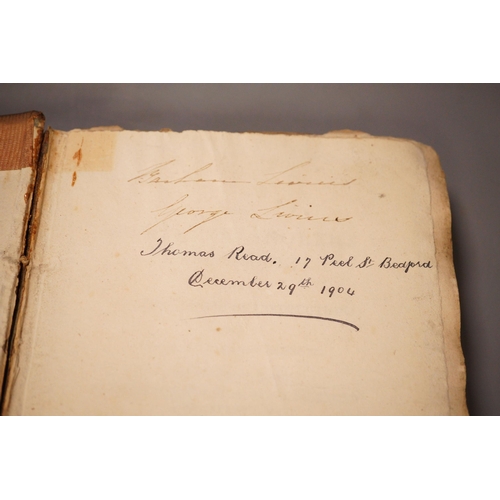 Barham Livius
George Livius
Thomas Read. 17 Peel St Bedford
December 29th 1904